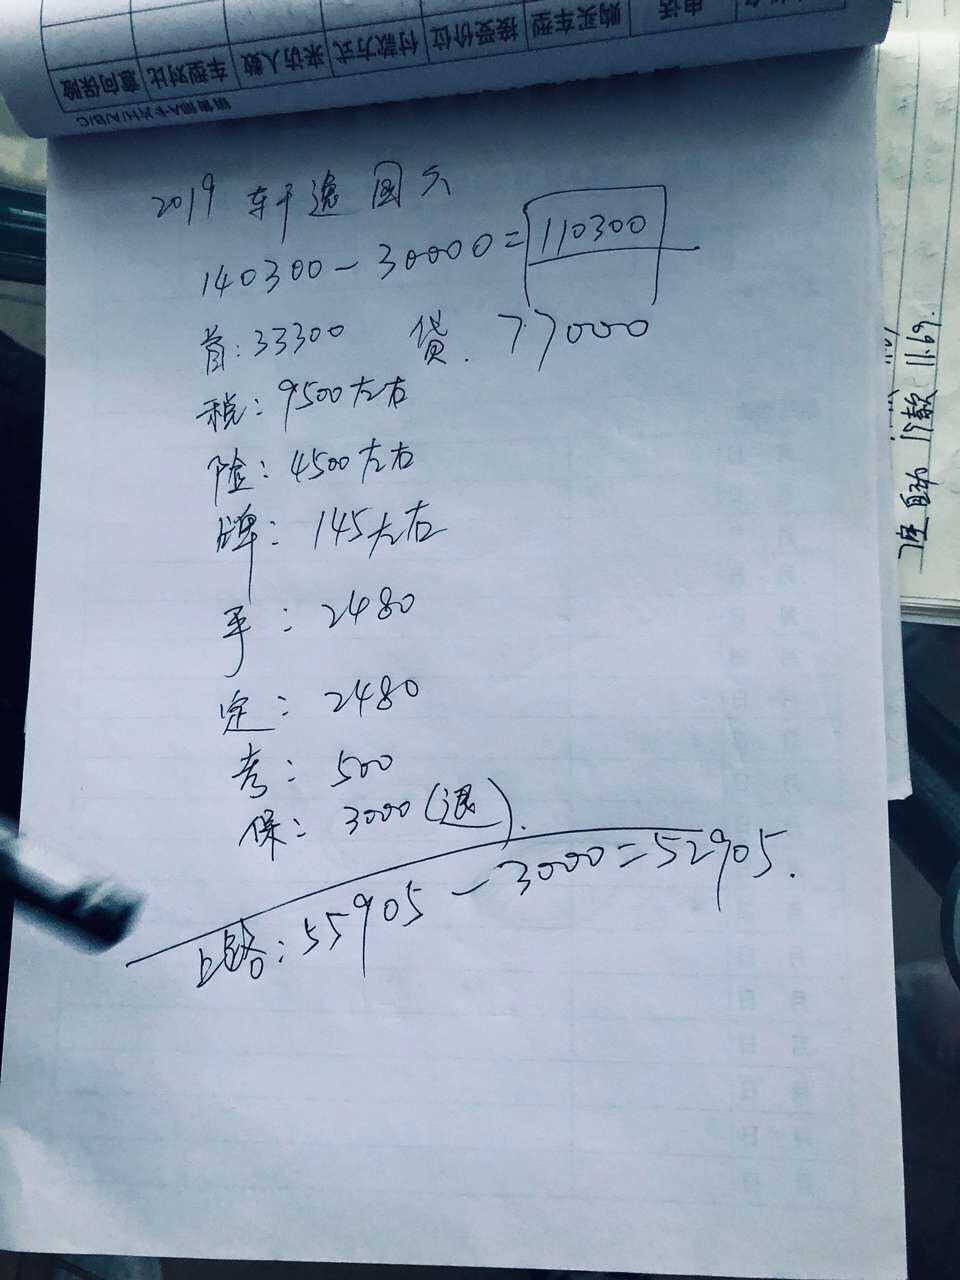 意向保险 车型对比 来访人数 付款方式 接受价位 购买车型 电话
2019 轩逸 国六
140300-30000=110300
首:33300 贷.77000
税:9500左右
险:4500左右
牌:145左右
手:2480
定:2480
考:500
保:3000(退).
上路:55905-3000=52905.